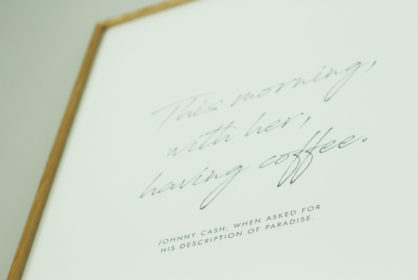 This morning,
with her,
having coffee.
JOHNNY CASH, WHEN ASKED FOR
HIS DESCRIPTION OF PARADISE.